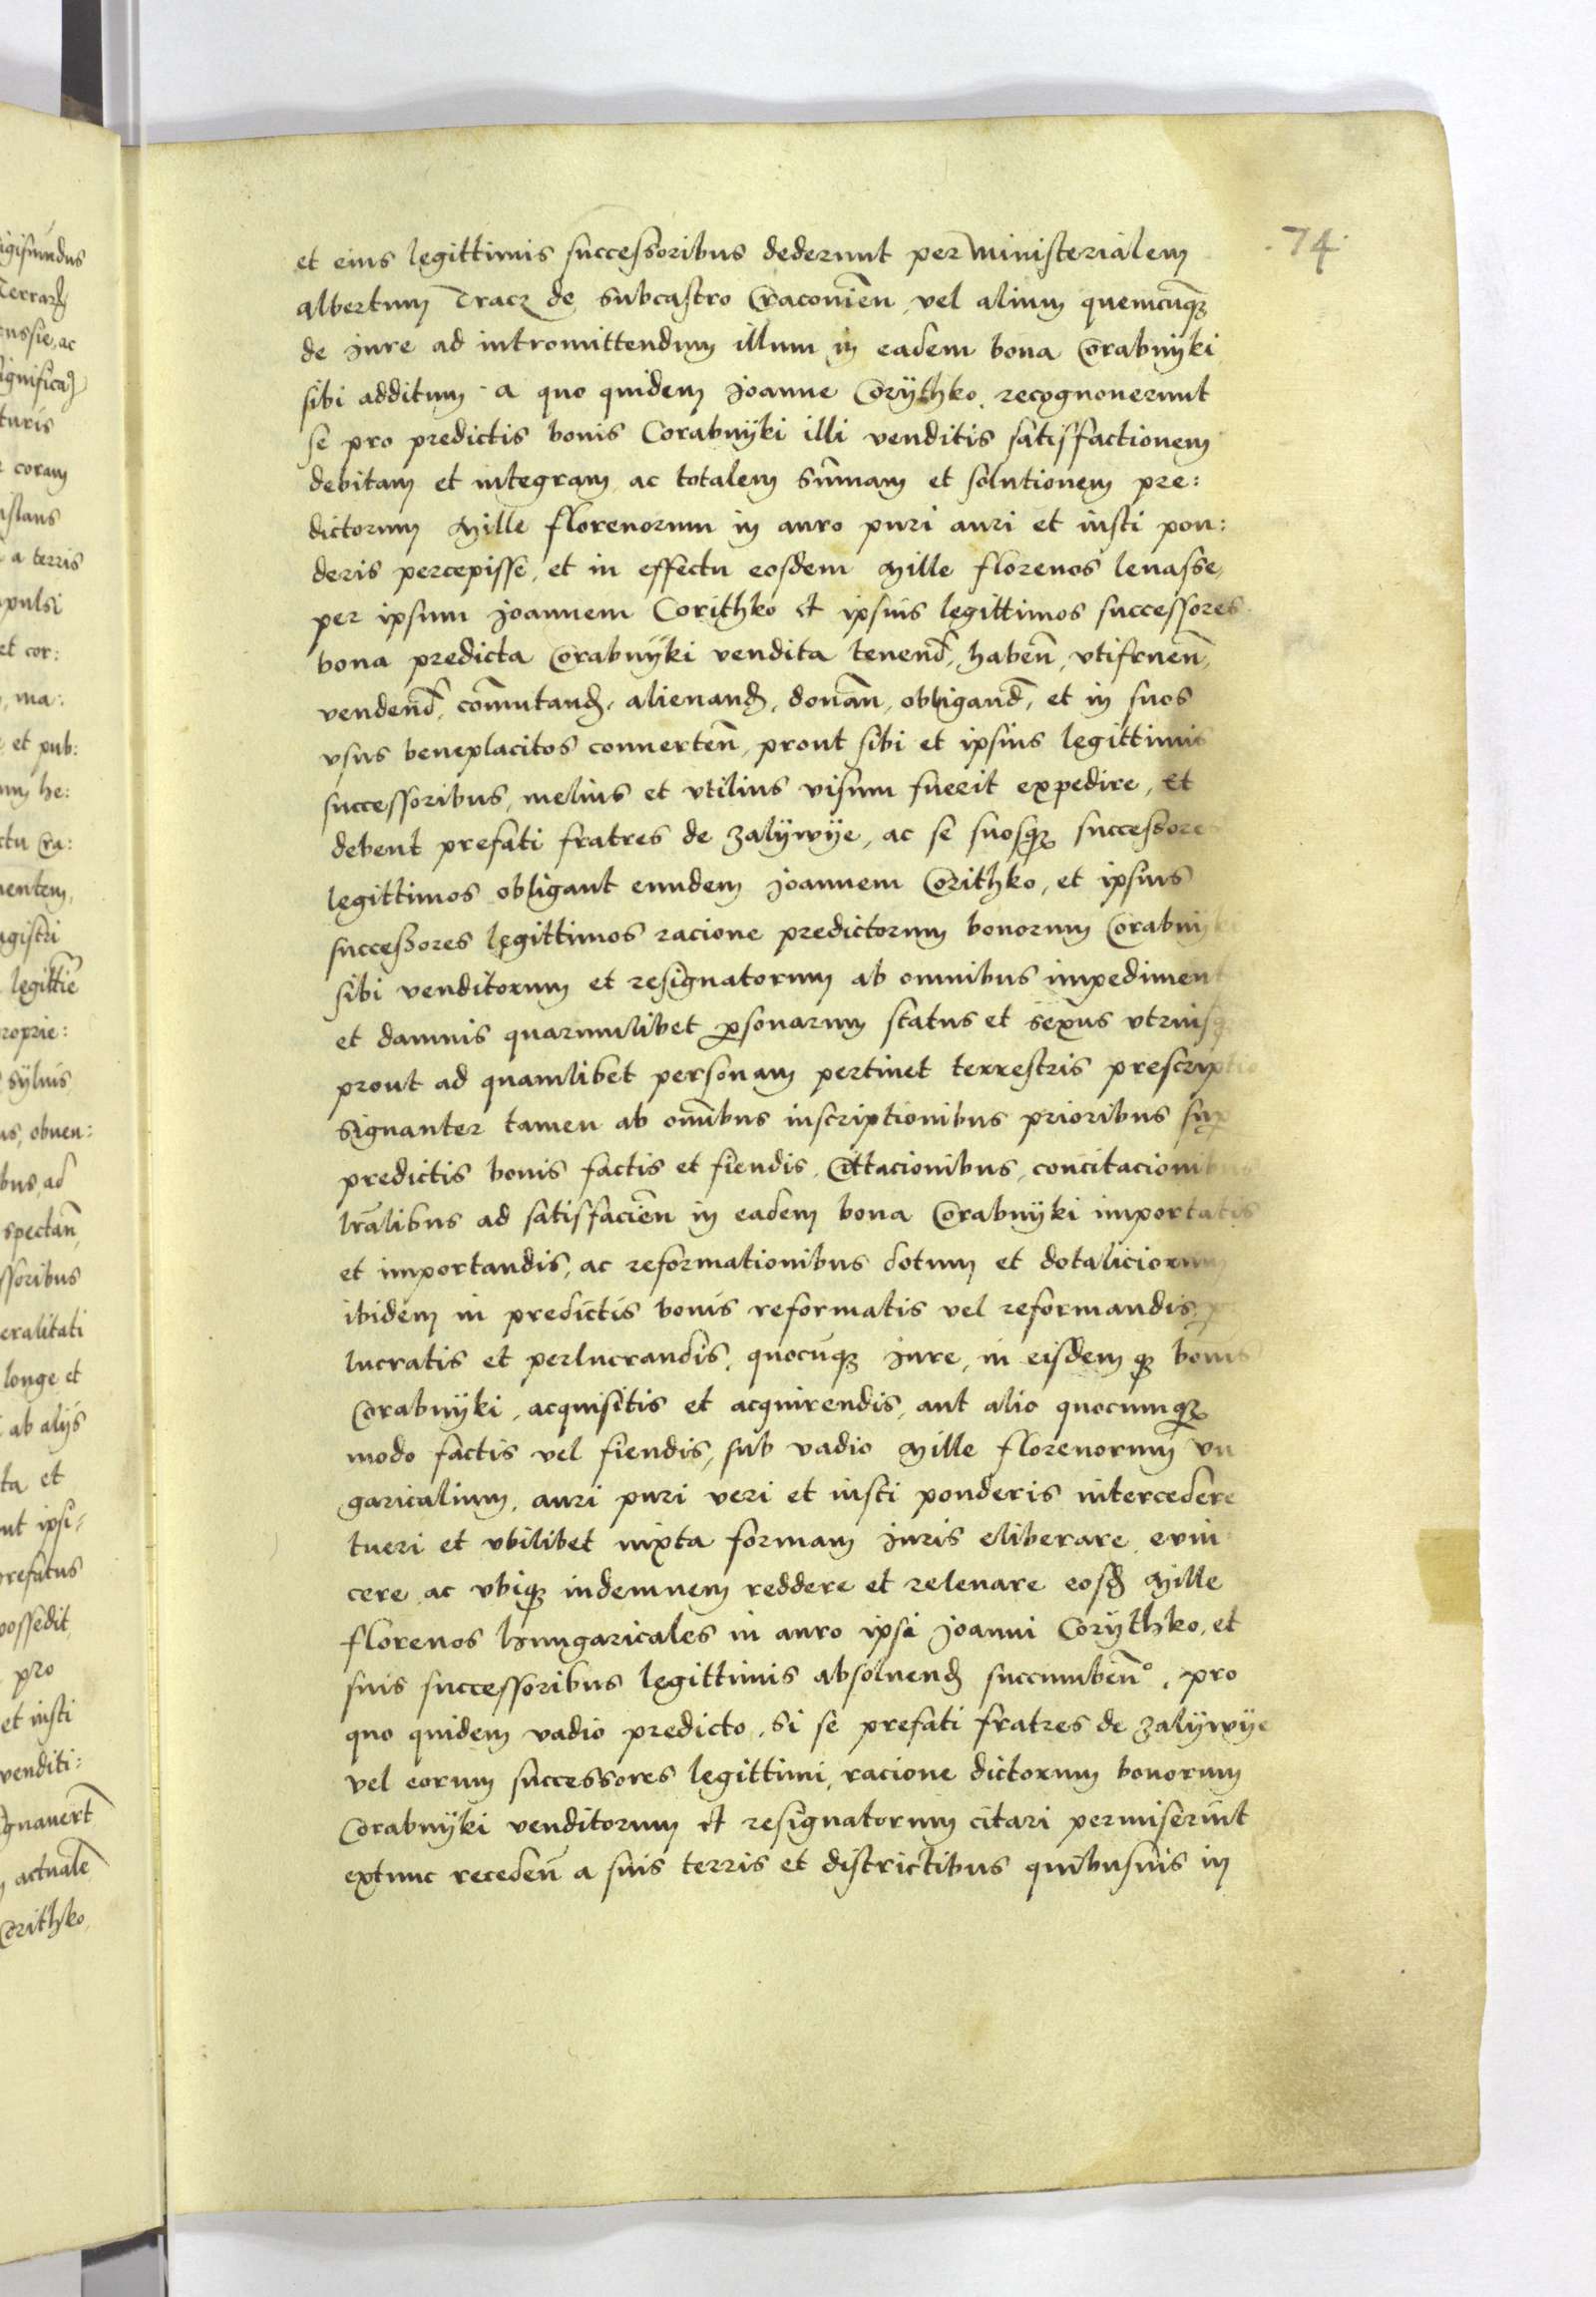 74
et eius legittimis successoribus dederunt per Ministerialem
Albertum Tracz de Subcastro Cracovien̄, vel alium quemcūqꝫ
de iure ad intromittendum illum in eadem bona Corabnÿki
sibi additum. A quo quidem Joanne Corÿthko, recognouerunt
se pro predictis bonis Corabnÿki illi venditis satisfactionem
debitam et integram ac totalem Sūmam et solutionem pre:
dictorum Mille florenorum in auro puri auri et iusti pon:
deris percepisse, et in effectu eosdem Mille florenos leuasse,
per ipsum Joannem Corithko et ipsius legittimos successores
bona predicta Corabnÿki vendita tenend̄, haben̄, vtifruen̄,
vendend̄, com̄utand̄, alienand̄, donan̄, obligand̄, et in suos
vsus beneplacitos conuerten̄, prout sibi et ipsius legittimis
successoribus, melius et vtilius visum fuerit expedire, Et
debent prefati fratres de Zalÿwÿe, ac se suosqꝫ successores
legittimos obligant eundem Joannem Corithko, et ipsius
successores legittimos racione predictorum bonorum Corabnÿki
sibi venditorum et resignatorum ab omnibus impediment
et damnis quarumlibet ꝑsonarum status et sexus vtriusqꝫ
prout ad quamlibet personam pertinet terrestris prescriptio
Signanter tamen ab om̄ibus inscriptionibus prioribus suꝑ
predictis bonis factis et fiendis, Cittacionibus, concitacionibus
lr̄alibus ad satisfacien̄ in eadem bona Corabnÿki importatis
et importandis, ac reformationibus dotum et dotaliciorum
ibidem in predictis bonis reformatis vel reformandis, per
lucratis et perlucrandis, quocūqꝫ iure, in eisdem qꝫ bonis
Corabnÿki, acquisitis et acquirendis, aut alio quocumqꝫ
modo factis vel fiendis, sub vadio Mille florenorum Vn
garicalium, auri puri veri et iusti ponderis intercedere
tueri et vbilibet iuxta formam iuris eliberare, euin
cere, ac vbiqꝫ indemnem reddere et releuare eosd̄ Mille
florenos hungaricales in auro ipsi Joanni Corÿthko, et
suis successoribus legittimis absoluend̄ succumben̄º, pro
quo quidem vadio predicto, Si se prefati fratres de Zalÿwÿe
vel eorum successores legittimi, racione dictorum bonorum
Corabnÿki venditorum et resignatorum citari permiserint
extunc receden̄ a suis terris et districtibus quibusuis in